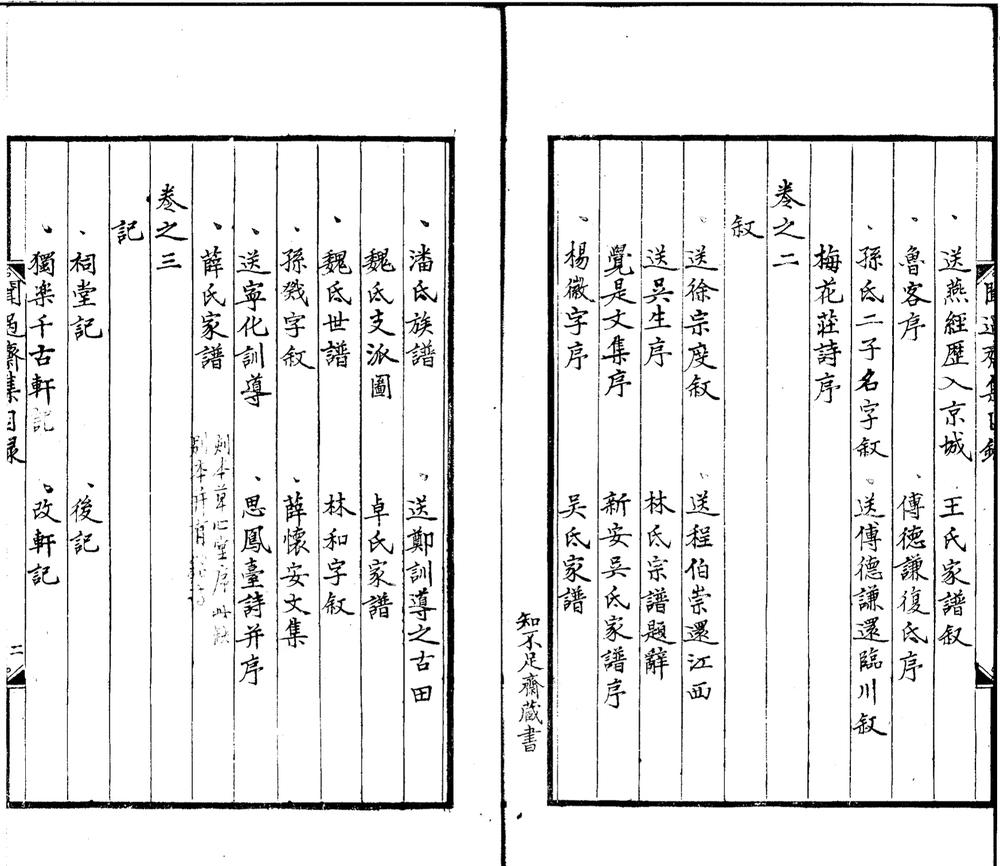 送燕經歷入京城　王氏家譜叙
魯客序　傅德謙復氏序
孫氏二子名字叙　送傅德謙還臨川叙
梅花莊詩序
卷之二
叙
送徐宗度叙　送程伯崇還江西
送吳生序　林氏宗譜題辭
覺是文集序　新安吳氏家譜序
楊徽字序　吳氏家譜
知不足齋藏書
潘氏族譜　送鄭訓導之古田
魏氏支派圖　卓氏家譜
魏氏世譜　林和字叙
孫戣字叙　薛懷安文集
送寧化訓導　思鳳臺詩并序
薛氏家譜
別本草心堂序此缺
別本并有
卷之三
記
祠堂記　後記
獨楽千古軒記　改軒記
聞過齋集目录
二